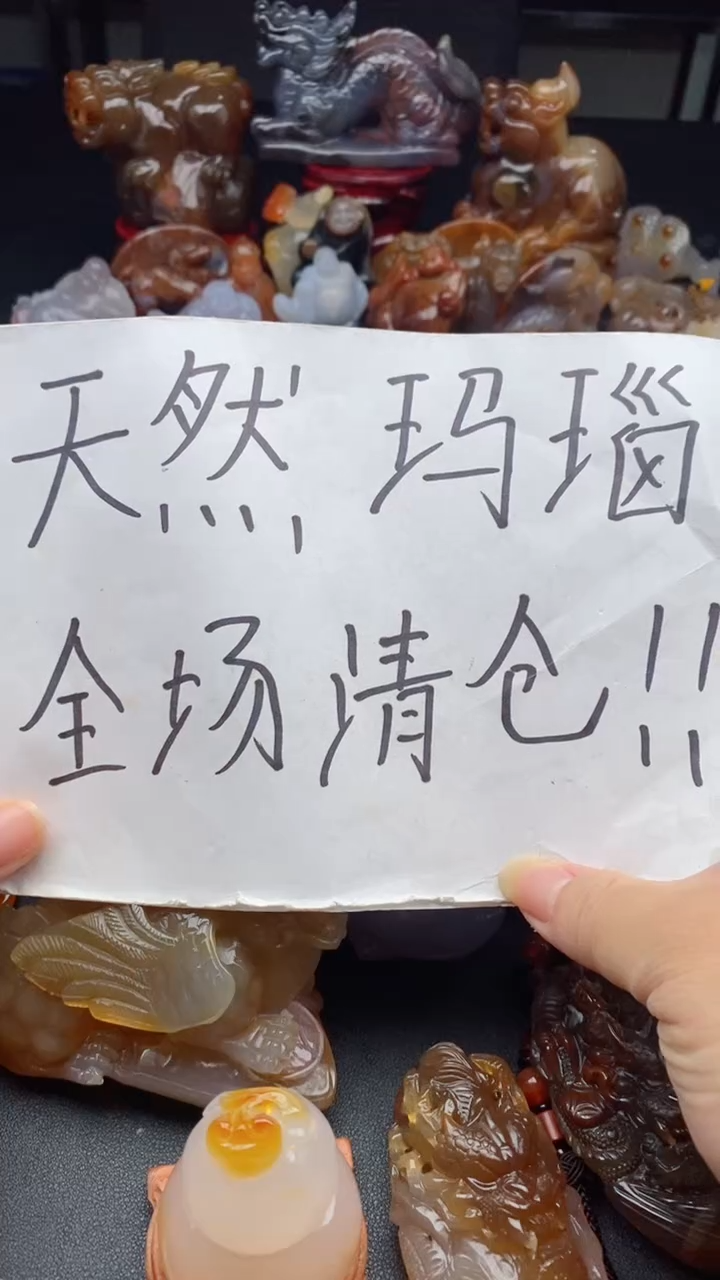 天然 玛瑙
全场清仓!!